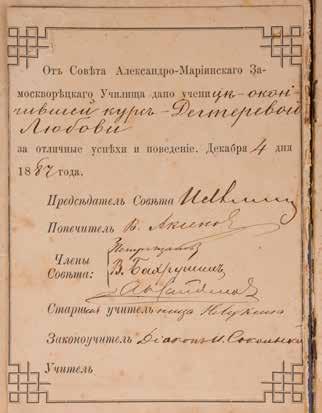 Отъ Совѣта Александро-Маріинскаго За-
москворѣцкаго Училища дано учени цѣ - окон-
чившей курсъ - Дегтеревой
Любови
за отличные успѣхи и поведеніе. Декабря 4 дня
1887 года.
Предсѣдатель Совѣта
Попечитель В. Аксенов
Члены
Совѣта:
В. Бахрушинъ
Старшая учительница
Законоучитель Діаконъ И. Соколовъ
Учитель